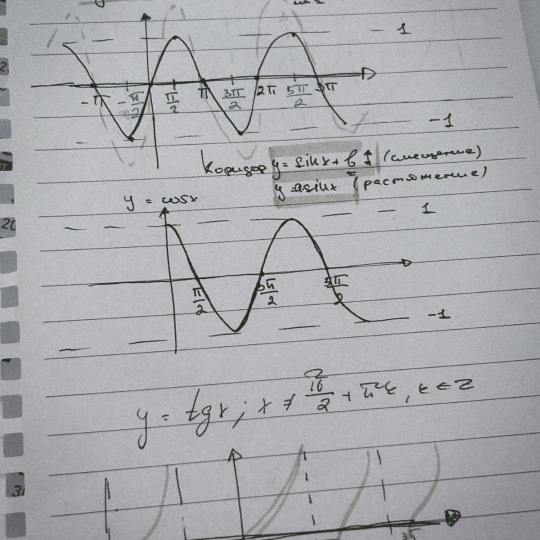 1
-π -π/2 π/2 π 3π/2 2π 5π/2 3π
-1
Коридор y = sinx + b ↕ (смещение)
y asinx (растяжение)
y = cosx
1
π/2 3π/2 5π/2
-1
y = tgx; x ≠ π/2 + πk, k ∈ Z